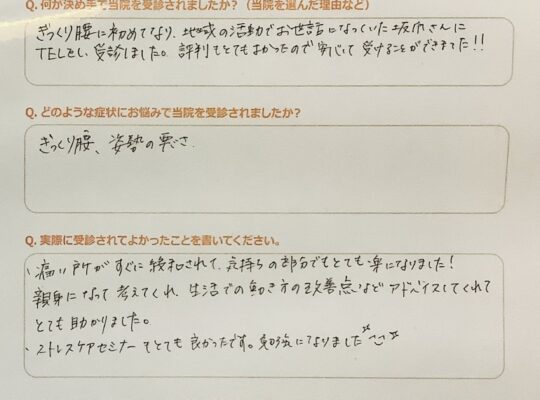 Q. 何が決め手で当院を受診されましたか？（当院を選んだ理由など）
ぎっくり腰に初めてなり、地域の活動でお世話になっていた坂巾さんに
TELをし、受診しました。評判もとてもよかったので安心して受けることができました!!
Q. どのような症状にお悩みで当院を受診されましたか？
ぎっくり腰、姿勢の悪さ
Q. 実際に受診されてよかったことを書いてください。
・痛い所がすぐに緩和されて、気持ちの部分でもとても楽になりました！
親身になって考えてくれ、生活での動き方の改善点などアドバイスしてくれて
とても助かりました。
・ストレスケアセミナーもとても良かったです。勉強になりました